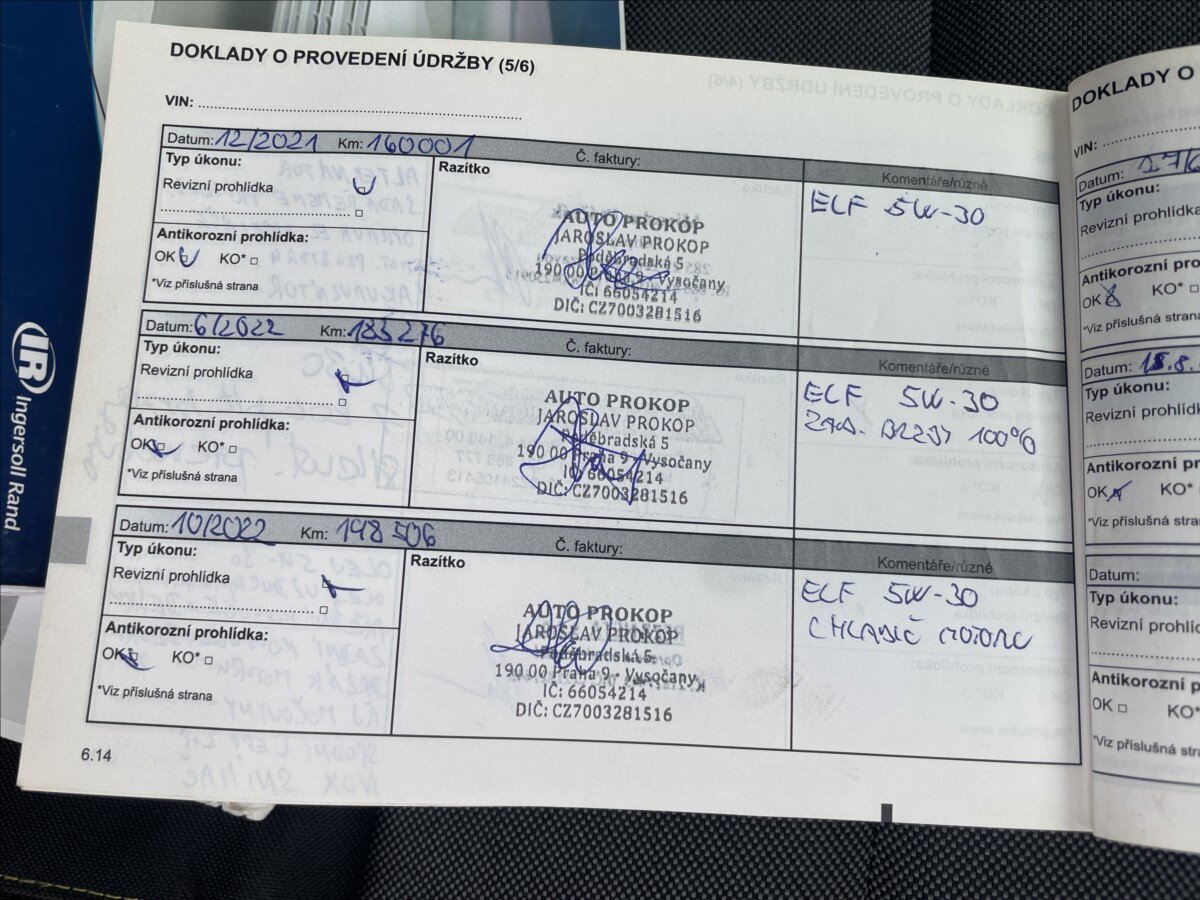 DOKLADY O PROVEDENÍ ÚDRŽBY (5/6)
VIN:
Datum: 12/2021 Km: 160001 Č. faktury:
Typ úkonu:
Revizní prohlídka
Antikorozní prohlídka:
OK KO*
*Viz příslušná strana
Razítko
AUTO PROKOP
JAROSLAV PROKOP
Poděbradská 5
190 00 Praha 9 - Vysočany
IČ: 66054214
DIČ: CZ7003281516
Komentáře/různé
ELF 5W-30
Datum: 6/2022 Km: 183276 Č. faktury:
Typ úkonu:
Revizní prohlídka
Antikorozní prohlídka:
OK KO*
*Viz příslušná strana
Razítko
AUTO PROKOP
JAROSLAV PROKOP
Poděbradská 5
190 00 Praha 9 - Vysočany
IČ: 66054214
DIČ: CZ7003281516
Komentáře/různé
ELF 5W-30
BRZDY 100%
Datum: 10/2022 Km: 198506 Č. faktury:
Typ úkonu:
Revizní prohlídka
Antikorozní prohlídka:
OK KO*
*Viz příslušná strana
Razítko
AUTO PROKOP
JAROSLAV PROKOP
Poděbradská 5
190 00 Praha 9 - Vysočany
IČ: 66054214
DIČ: CZ7003281516
Komentáře/různé
ELF 5W-30
CHLADIČ MOTORU
6.14
DOKLADY O
VIN:
Datum:
Typ úkonu:
Revizní prohlídk
Antikorozní pro
OK KO*
*Viz příslušná strana
Datum: 18.8.
Typ úkonu:
Revizní prohlídk
Antikorozní p
OK KO*
*Viz příslušná stra
Datum:
Typ úkonu:
Revizní prohlí
Antikorozní p
OK KO*
*Viz příslušná st
IR Ingersoll Rand